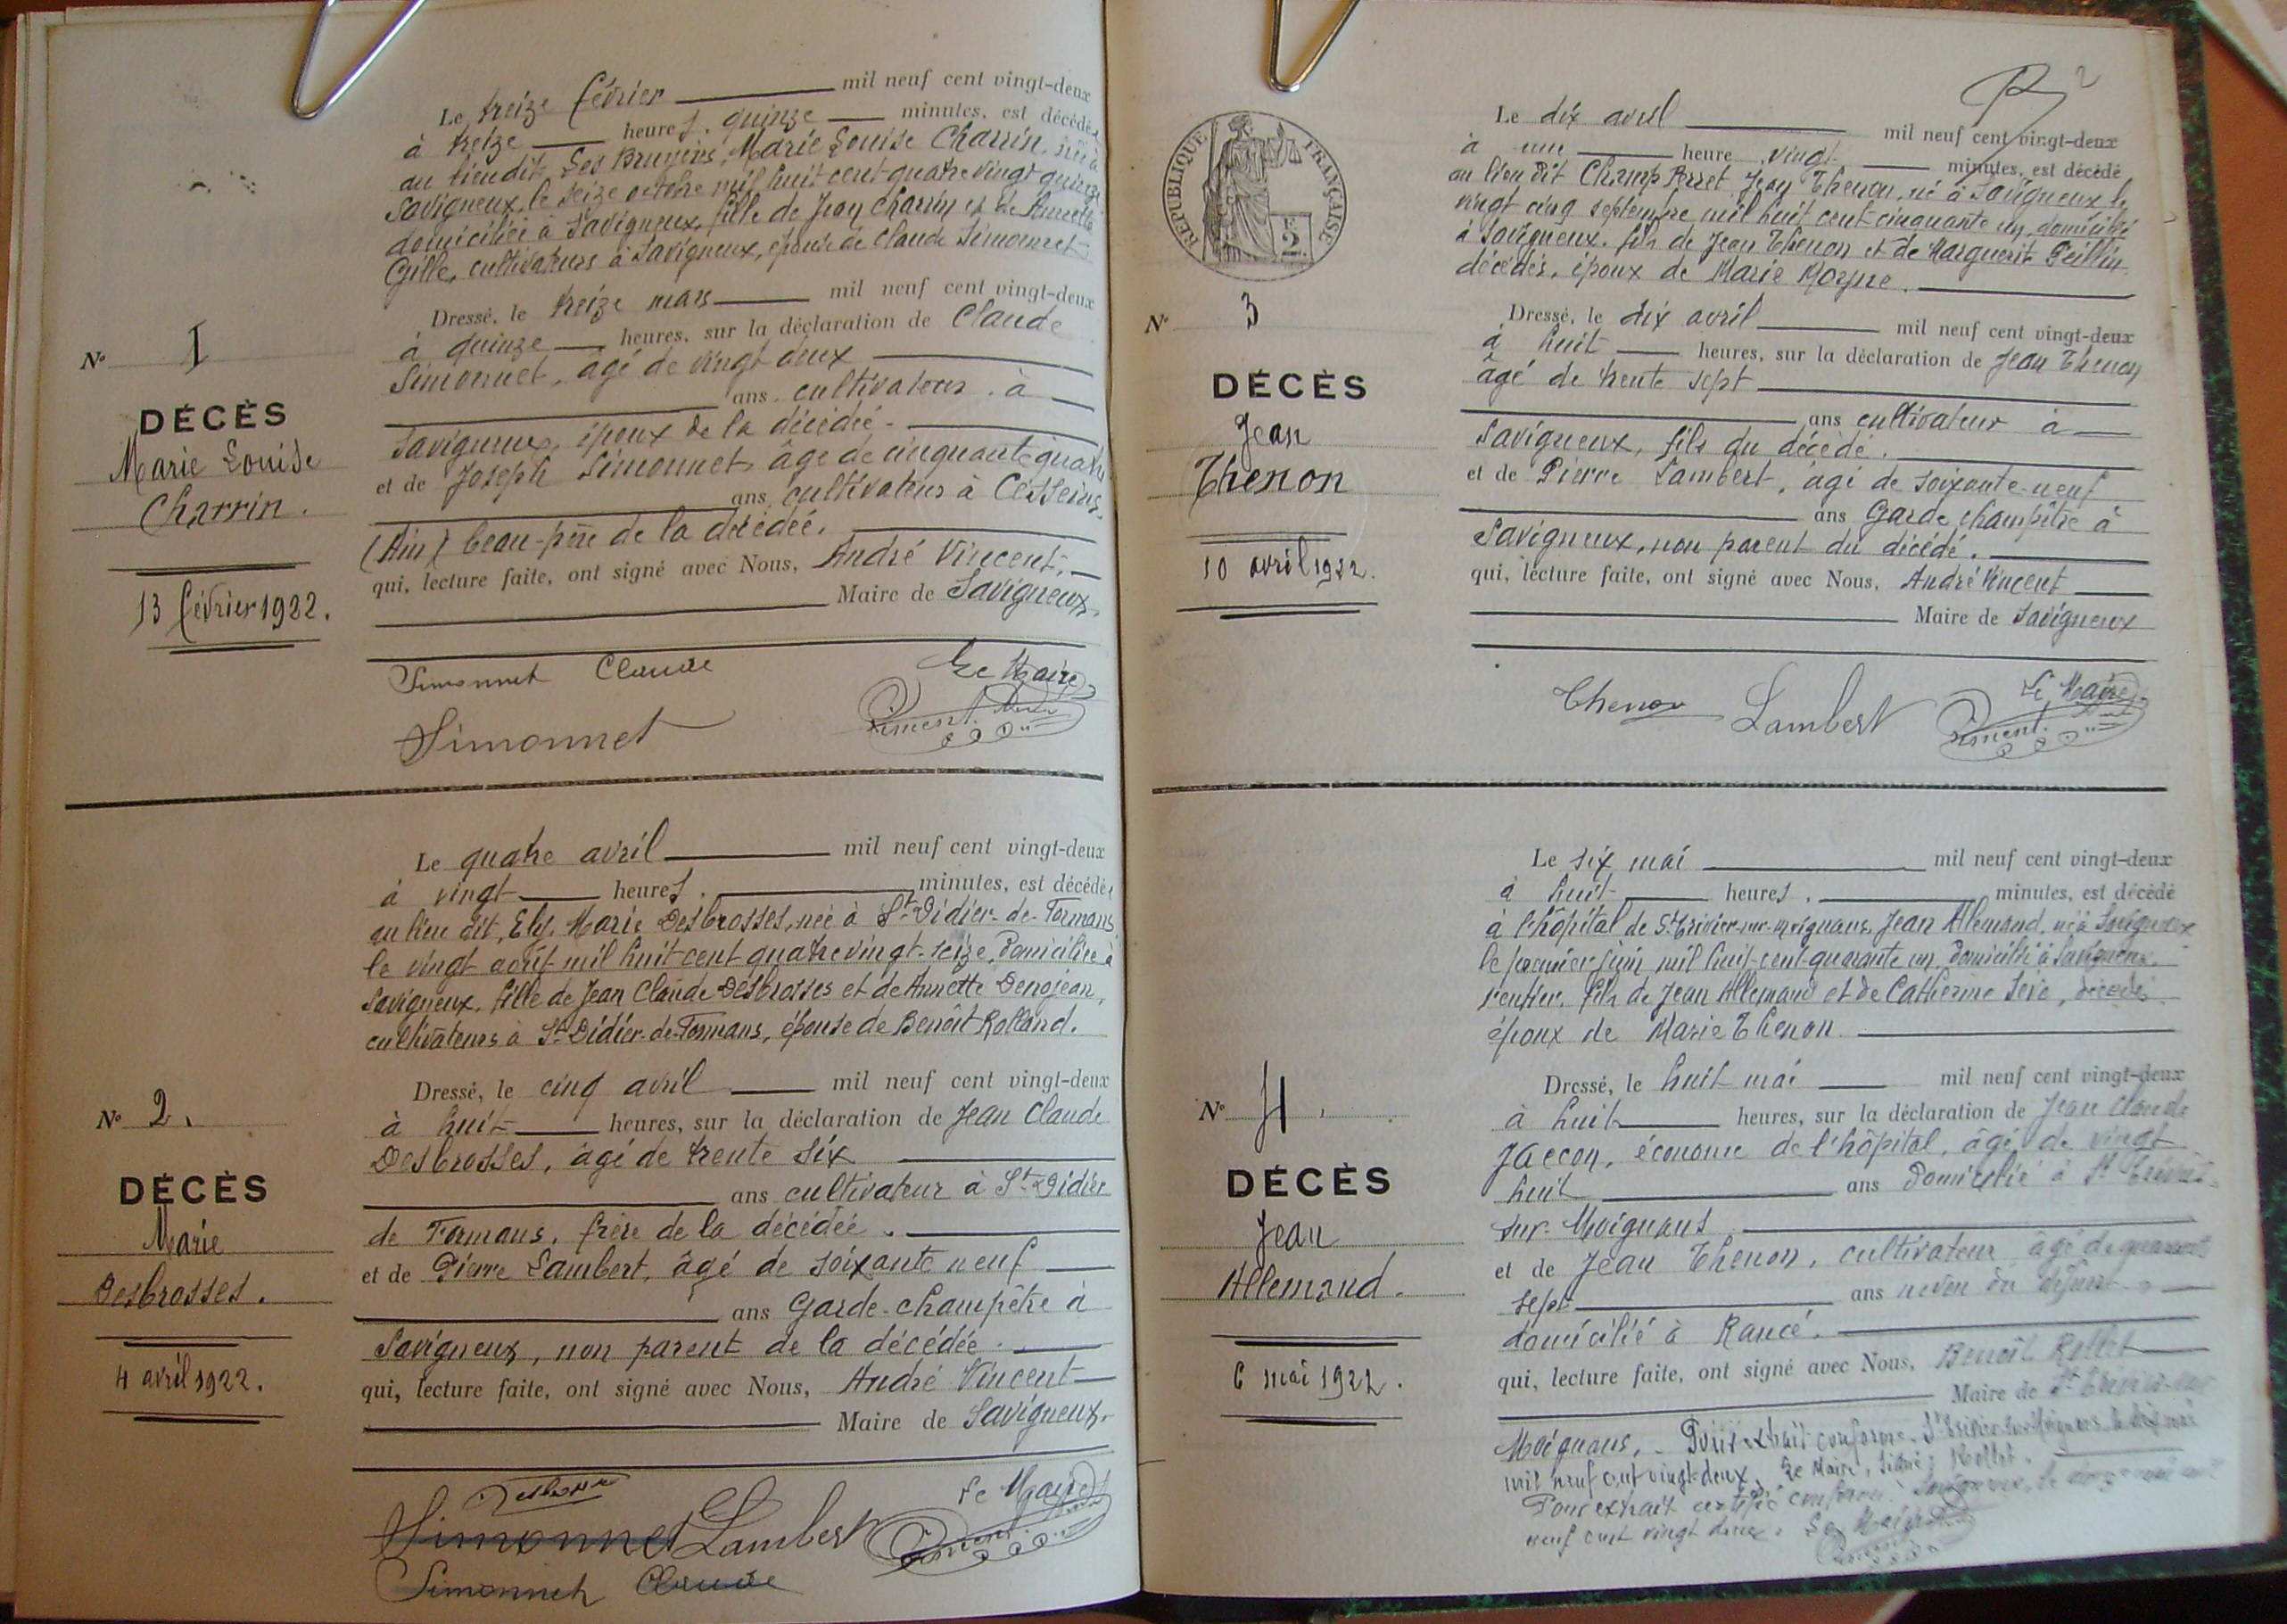 Le treize février mil neuf cent vingt-deux
à treize heures. quinze minutes, est décédée
au lieu dit Les Bruyères, Marie Louise Charrin, née à
Savigneux, le seize octobre mil huit cent quatre vingt quinze
domiciliée à Savigneux, fille de Jean Charrin et de Annette
Gille, cultivateurs à Savigneux, épouse de Claude Simonnet
Dressé, le treize mars mil neuf cent vingt-deux
à quinze heures, sur la déclaration de Claude
Simonnet, âgé de vingt deux
ans cultivateur. à
Savigneux, époux de la décédée.
et de Joseph Simonnet, âgé de cinquante quatre
ans cultivateur à Cesseins
(Ain) beau-père de la décédée.
qui, lecture faite, ont signé avec Nous, André Vincent,
Maire de Savigneux.
Simonnet Claude
Le Maire
Simonnet
Vincent
N° 1
DÉCÈS
Marie Louise
Charrin.
13 février 1922.
Le quatre avril mil neuf cent vingt-deux
à vingt heures. minutes, est décédée
au lieu dit, Ely, Marie Desbrosses, née à St Didier-de-Formans
le vingt août mil huit cent quatre vingt-seize, domiciliée à
Savigneux, fille de Jean Claude Desbrosses et de Annette Denojean,
cultivateurs à St Didier-de-Formans, épouse de Benoît Rolland.
Dressé, le cinq avril mil neuf cent vingt-deux
à huit heures, sur la déclaration de Jean Claude
Desbrosses, âgé de trente six
ans cultivateur à St Didier
de Formans, frère de la décédée.
et de Pierre Lambert, âgé de soixante neuf
ans Garde-champêtre à
Savigneux, non parent de la décédée.
qui, lecture faite, ont signé avec Nous, André Vincent
Maire de Savigneux.
Le Maire
Simonnet Lambert Vincent
Simonnet Claude
N° 2.
DÉCÈS
Marie
Desbrosses.
4 avril 1922.
2
RÉPUBLIQUE FRANÇAISE
2
Le dix avril mil neuf cent vingt-deux
à une heure vingt minutes, est décédé
au lieu dit Champ Perret Jean Thenon, né à Savigneux le
vingt cinq septembre mil huit cent cinquante un, domicilié
à Savigneux. fils de Jean Thenon et de Marguerite Peillin
décédés, époux de Marie Moyne.
Dressé, le dix avril mil neuf cent vingt-deux
à huit heures, sur la déclaration de Jean Thenon
âgé de trente sept
ans cultivateur à
Savigneux, fils du décédé.
et de Pierre Lambert, âgé de soixante-neuf
ans Garde champêtre à
Savigneux, non parent du décédé.
qui, lecture faite, ont signé avec Nous, André Vincent
Maire de Savigneux
Le Maire
Thenon Lambert Vincent
N° 3
DÉCÈS
Jean
Thenon
10 avril 1922.
Le six mai mil neuf cent vingt-deux
à huit heures. minutes, est décédé
à l'hôpital de St Trivier-sur-Moignans, Jean Allemand, né à Savigneux
le premier juin mil huit-cent quarante un, domicilié à Savigneux
rentier, fils de Jean Allemand et de Catherine Sève, décédés
époux de Marie Thenon.
Dressé, le huit mai mil neuf cent vingt-deux
à huit heures, sur la déclaration de Jean Claude
Jaccon, économe de l'hôpital, âgé de vingt
huit ans domicilié à St Trivier
sur-Moignans
et de Jean Thenon, cultivateur âgé de quarante
sept ans neveu du défunt
domicilié à Rancé.
qui, lecture faite, ont signé avec Nous, Benoît Rollet
Maire de St Trivier-sur
Moignans. - Pour extrait conforme. St Trivier-sur-Moignans le dix mai
mil neuf cent vingt-deux. Le Maire, signé: Rollet.
Pour extrait certifié conforme. Savigneux, le
neuf cent vingt deux. Le Maire
N° 4.
DÉCÈS
Jean
Allemand.
6 mai 1922.